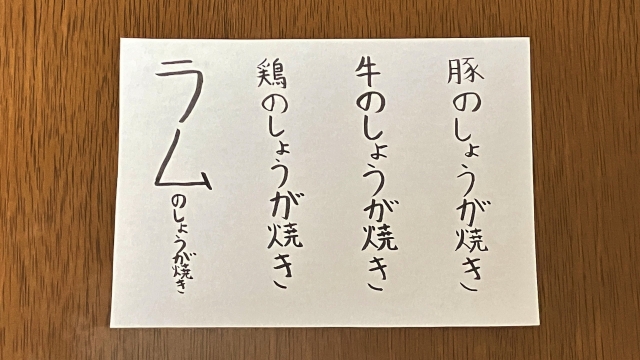 豚のしょうが焼き
牛のしょうが焼き
鶏のしょうが焼き
ラムのしょうが焼き